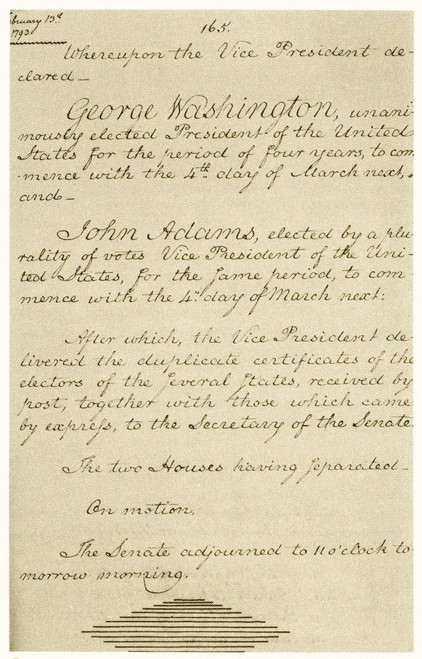 February 13th
1793
165.
Whereupon the Vice President de-
clared_
George Washington, unani-
mously elected President of the United
States for the period of four years, to com
-mence with the 4th day of March next,
and_
John Adams, elected by a plu-
rality of votes Vice President of the Uni-
ted States, for the ſame period, to com-
mence with the 4th day of March next:
After which, the Vice President de-
livered the duplicate certificates of the
electors of the ſeveral States, received by
post, together with those which came
by expreſs, to the Secretary of the Senate.
The two Houses having ſeparated_
On motion,
The Senate adjourned to 11 o'clock to-
morrow morning.